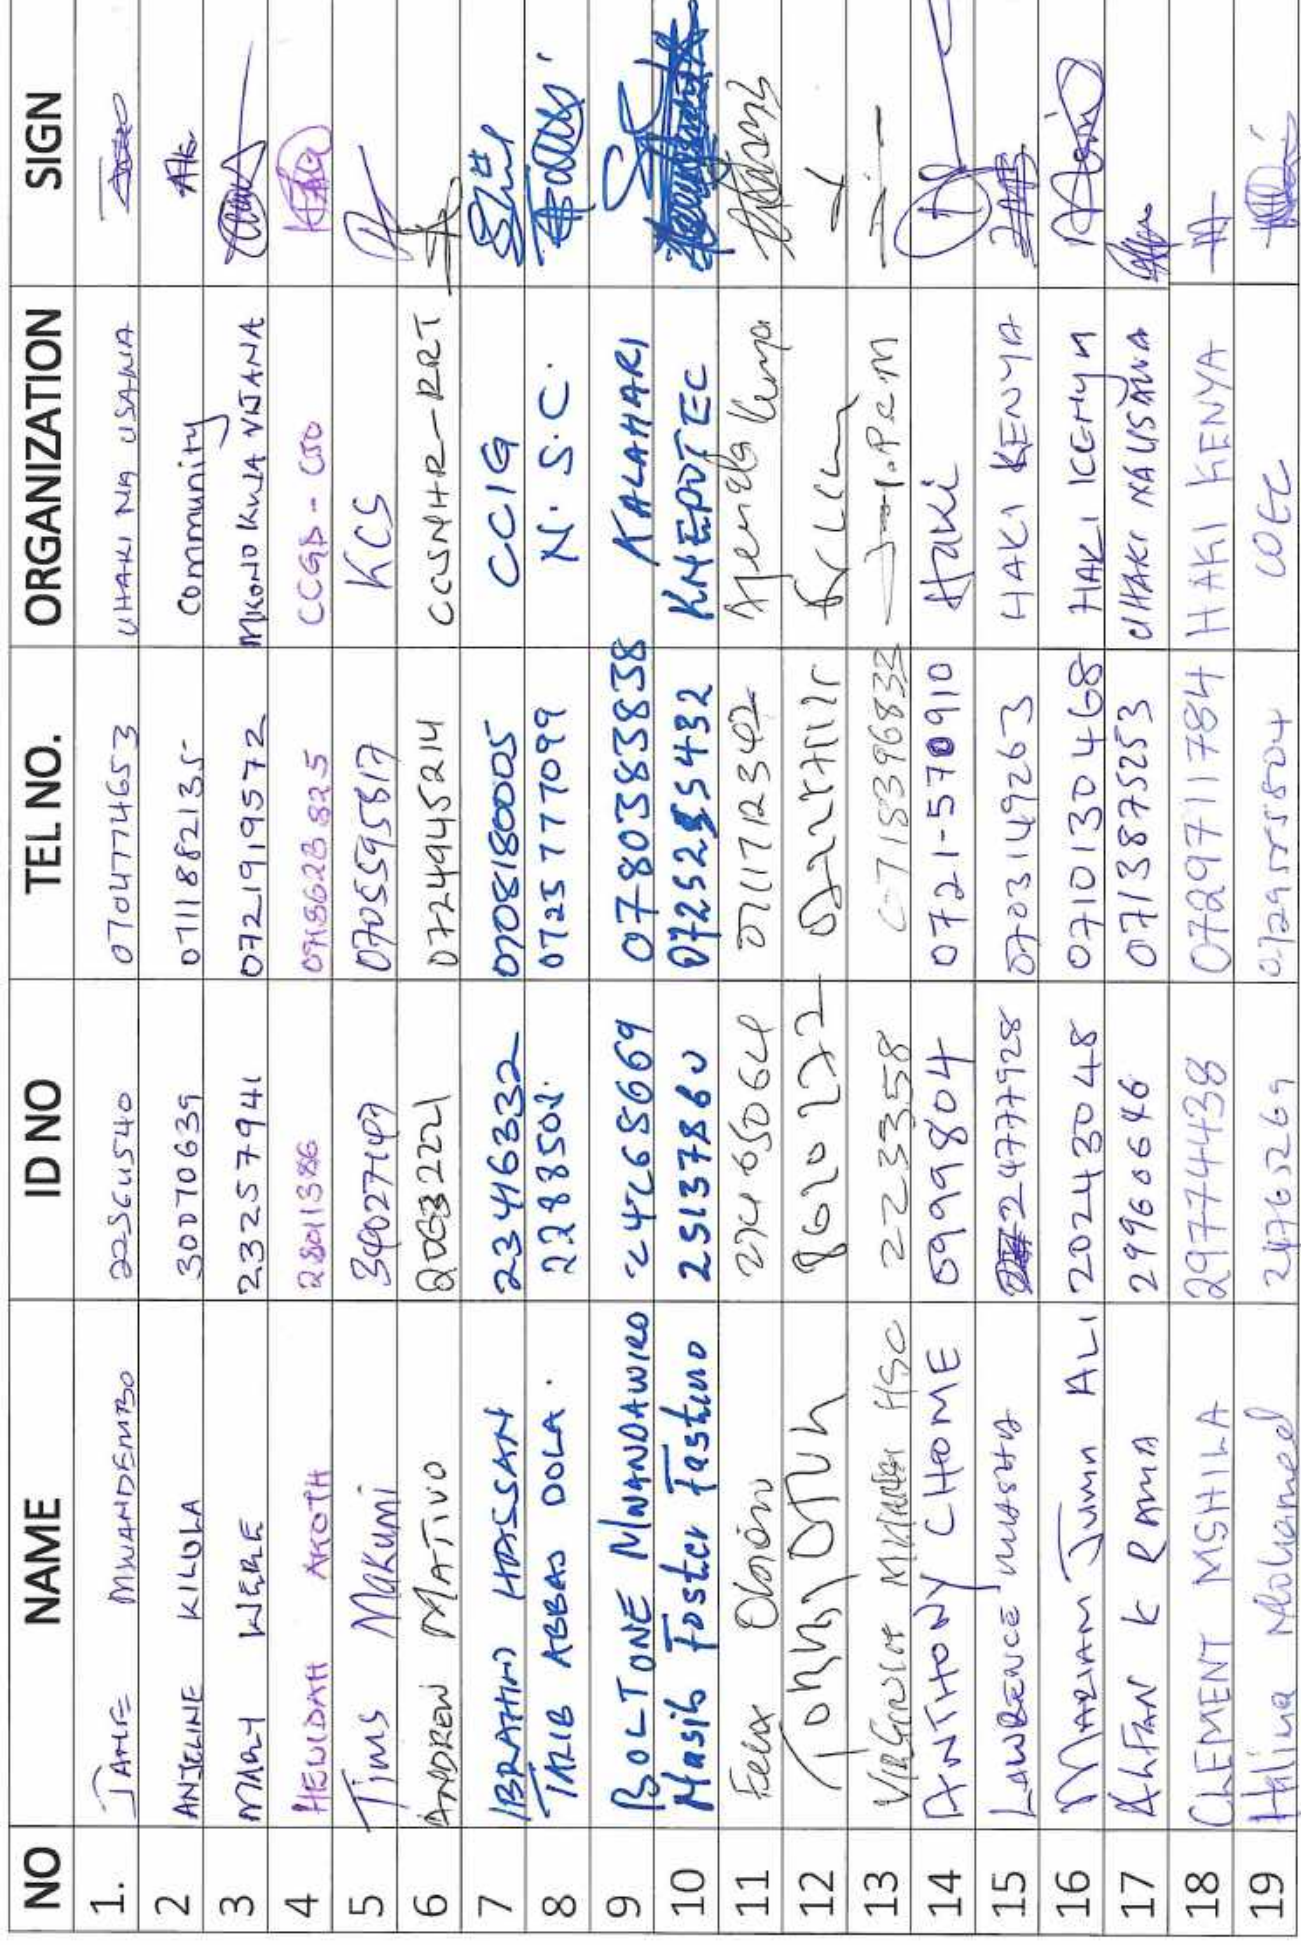 NO NAME ID NO TEL NO. ORGANIZATION SIGN
1. JANE MWANDEMBO 22564540 0704774653 UHAKI NA USAWA
2 ANJELINE KILULA 30070639 0711882135 Community
3 MARY WERE 23257941 0721919572 MKONO KWA VIJANA
4 HELIDAH AKOTH 28041386 CCGD - CSO
5 Tims Makumi 0705595817 KCS
6 ANDREW MATIVO 0724945214 CCSNHR-RRT
7 IBRAHIM HASSAN 23416332 0708180005 CCIG
8 TARIB ABBAS DOLA. 2288508. 0725777099 N.S.C.
9 BOLTONE MWANDAWIRO 24265669 0780383838 KALAHARI
10 Masib Foster Fastino 25137860 KNEPDTEC
11 Felix 27465064 0711712342
12 Tonny 8620272
13 2233358 0715396833
14 ANTHONY CHOME 0999804 0721-570910 HAKI
15 LAWRENCE MWASHA 24777928 0703149263 HAKI KENYA
16 MARIAM Juma ALI 20243048 0710130468 HAKI
17 AhFAN K RAMA 29960646 0713887253 UHAKI NA USAWA
18 CLEMENT MSHILA 29774438 0729711784 HAKI KENYA
19 Halima Mohamed 24765269 0729555804